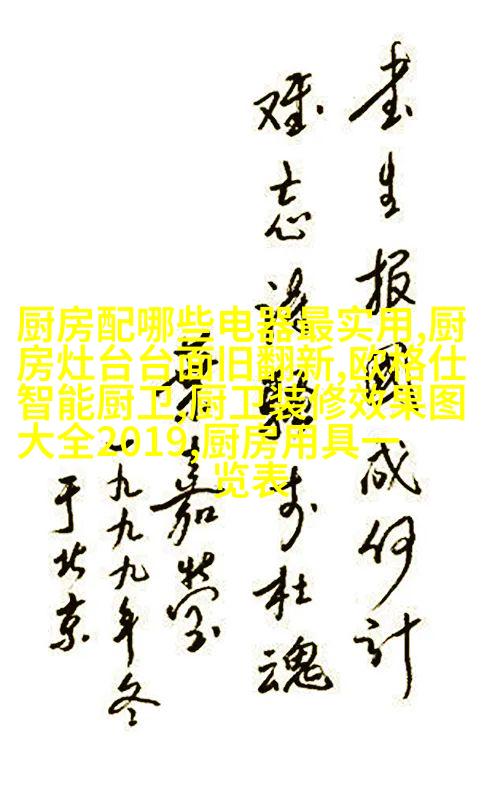 厨房配哪些电器最实用,厨
房灶台台面旧翻新,欧格仕
智能厨卫,厨卫装修效果图
大全2019,厨房用具一
览表
书生报國成何计
难忘诗骚李杜魂
葉嘉莹
一九九九年冬
于北京